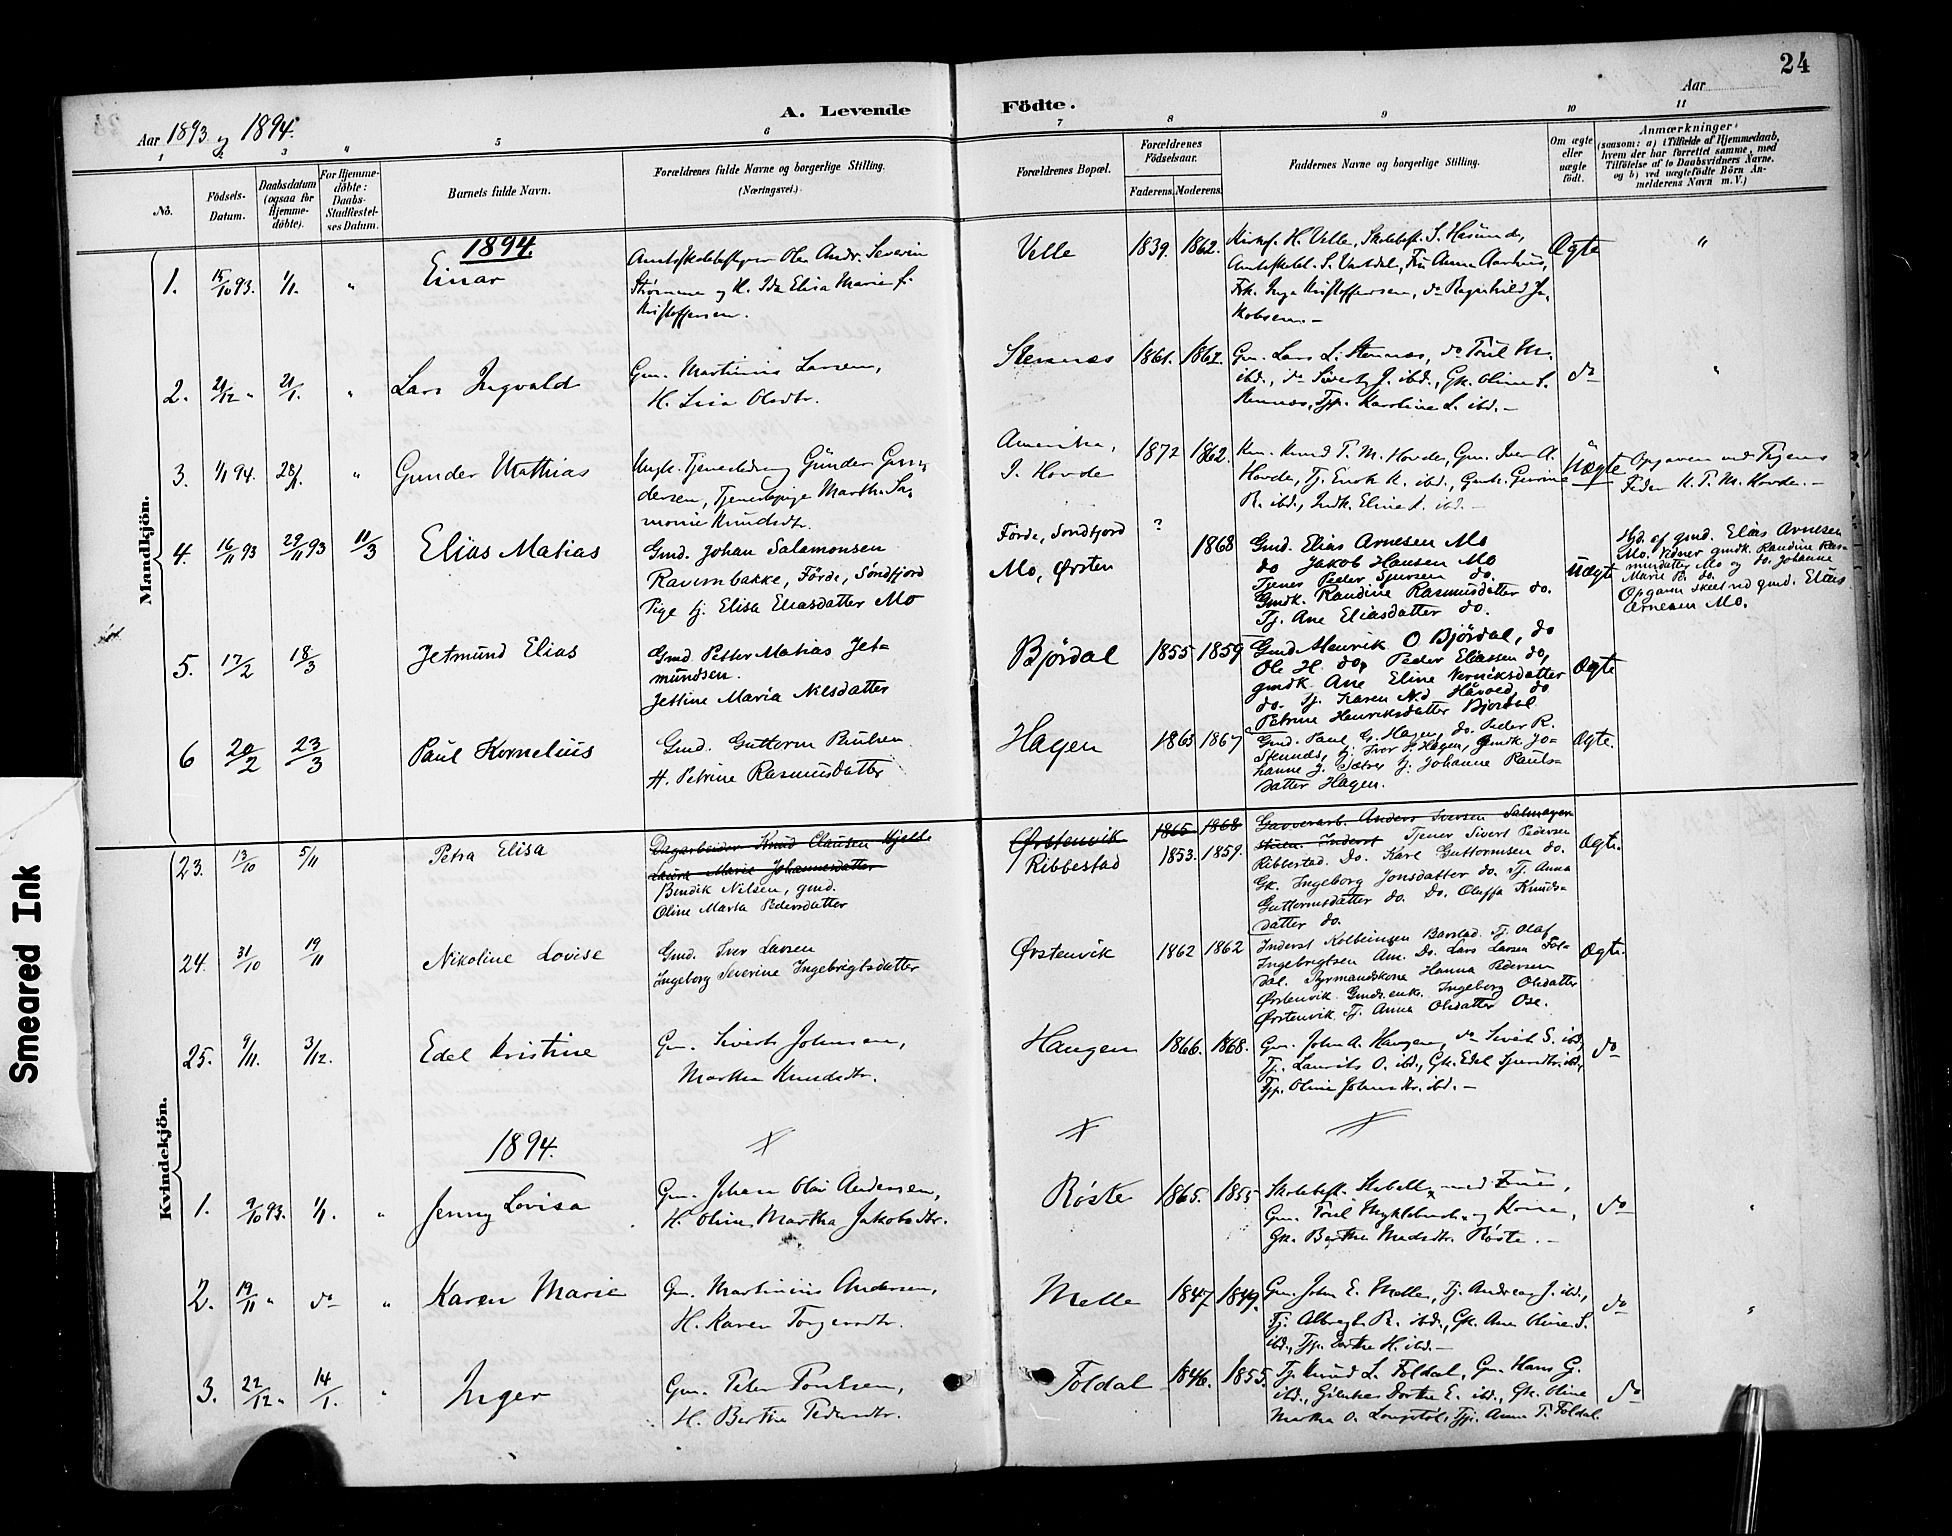 24
A. Levende Födte.
Aar
Aar 1893 og 1894.
1 3 5 6 7 8 9 10 11
No.
Födsels-
Datum.
Daabsdatum
(ogsaa for
Hjemme-
döbte).
For Hjemme-
döbte:
Daabs-
Stadfæstel-
ses Datum.
Barnets fulde Navn.
Forældrenes fulde Navne og borgerlige Stilling.
(Næringsvei.)
Forældrenes Bopæl.
Forældrenes
Födselsaar.
Faderens. Moderens.
Faddernes Navne og borgerlige Stilling.
Om ægte
eller
uægte
födt.
Anmærkninger
(saasom: a) i Tilfælde af Hjemmedaab,
hvem der har forrettet samme, med
Tilföielse af to Daabsvidners Navne,
og b) ved uægtefödte Börn An-
melderens Navn m. V.)
Mandkjön.
1894.
1. 15/10 93. 1/1. " Einar
Amtsskolebestyrer Ole Andr. Severin
Strømme og H. Ida Elisa Marie f.
Kristoffersen.
Velle 1839. 1862.
Kirkes. H. Velle, Skolebest. S. Hasund,
Amtsskolel. S. Vatdal, Fru Anna Aarhus,
Frk. Inga Kristoffersen, do Ragnhild Ja-
kobsen. –
Ægte "
2. 21/12 " 21/1. " Lars Ingvald
Gm. Martinus Larsen,
H. Lisa Olsdtr.
Stennæs 1861. 1862.
Gm. Lars L. Stennæs, do Poul M.
ibd., do Sivert J. ibd., Gk. Oline S.
Stennæs, Tjp. Karoline L. ibd. –
do "
3. 1/1 94. 28/1. " Gunder Mathias
Ungk. Tjenestedreng Gunder Gun-
dersen, Tjenestepige Martha Sa-
monie Knudsdtr.
Amerika,
I. Hovde
1872 1862.
Km. Knud T. M. Hovde, Gm. Iver A.
Hovde, Tj. Enok K. ibd., Gmk. Gurine
R. ibd., Indk. Eline L. ibd. –
Uægte
Opgaven ved Pigens
Fader K. T. M. Hovde. –
4. 16/11 93 29/11 93 11/3 Elias Matias
Gmd. Johan Salamonsen
Ravnnbakke, Förde, Söndfjord
Pige tj. Elisa Eliasdatter Mo
Förde, Söndfjord
Mo, Ørsten
? 1868
Gmd. Elias Arnesen Mo
do Jakob Hansen Mo
Tjener Peder Sjursen do.
Gmdk. Randine Rasmusdatter do.
Tj. Ane Eliasdatter do.
Uægte
Hjd. af gmd. Elias Arnesen
Mo. Vidner gmdk. Randine Ras-
musdatter Mo og do. Johanne
Marie P. do.
Opgavn skeet ved gmd. Elias
Arnesen Mo.
5. 17/2 18/3 Jetmund Elias
Gmd. Petter Matias Jet-
mundsen.
Jettine Maria Nilsdatter
Bjórdal 1855 1859
Gmd. Henrik O Bjórdal, do
Ole H. do, Peder Eliassen do,
gmdk. Ane Eline Henriksdatter
do. tj. Karen N.d. Haaved, do
Petrine Henriksdatter Bjordal
Ægte
6 20/2 23/3 Paul Kornelius
Gmd. Guttorm Paulsen
H. Petrine Rasmusdatter
Hagen 1863 1867
Gmd. Paul G. Hagen, do. Peder R.
Skunds, tj. Iver P. Hagen, gmdk Jo-
hanne J. Sætre tj. Johanne Pauls-
datter Hagen.
Ægte.
Kvindekjön.
23. 13/10 5/11 Petra Elisa
Dagarbeider Knud Clausen Hjelle
Laura Marie Johannesdatter
Bendik Nilsen, gmd.
Oline Marta Pedersdatter
Ørstenvik
Ribbestad
1865 1868
1853. 1859.
Gavverarb. Anders Iversen Salmager
Inderst Tjener Sivert Pedersen
Ribbestad. Do. Karl Guttormsen do.
Gk. Ingeborg Jonsdatter do. Tj. Anna
Guttormsdatter do. Do. Oluffa Knuds-
datter do.
Ægte.
24. 31/10 19/11 Nikoline Lovise
Gmd. Iver Larsen
Ingeborg Severine Ingebrigtsdatter
Ørstenvik 1862 1862
Inderst Kolbeinsen Barstad. Tj. Olaf
Ingebrigtsen Am. Do. Lars Larsen Fol-
dal. Styrmandskone Hanna Pedersen
Ørstenvik. Gmds.enke. Ingeborg Olsdatter
Ørstenvik Tj. Anna Olsdatter Ose.
Ægte.
25. 9/11. 3/12. Edel Kristine
Gm. Sivert Johnsen,
Martha Knudsdtr.
Haugen 1866. 1868.
Gm. John A. Haugen, do Sivert S. ibd.,
Tj. Laurits O. ibd., Gk. Edel Sjurdtr. ibd.,
Tjp. Oline Johnsdtr. ibd. –
do
1894.
1. 9/10 93. 1/1. " Jenny Lovisa
Gm. Johan Olai Andersen,
H. Oline Martha Jakobsdtr.
Røske 1865. 1855
Skolebest. med Frue,
Gm. Poul Myklebust og Kone,
Gk. Berthe Madsdtr. Røste. –
do "
2. 19/11 " do " Karen Marie
Gm. Martinius Andersen,
H. Karen Torgersdtr.
Melle 1847 1849.
Gm. John E. Melle, Tj. Andreas J. ibd.,
Tj. Albregt R. ibd., Gk. Ane Oline S.
ibd., Tjp. Dorthe H. ibd. –
do "
3. 22/12 " 14/1. " Inger
Gm. Peter Poulsen,
H. Berthe Pedersdtr.
Foldal 1846. 1855.
Tj. Knud L. Foldal, Gm. Hans G.
ibd., Dorthe E. ibd., Gk. Oline
Martha O. Tjp. Anne P. Foldal.
do
Smeared Ink